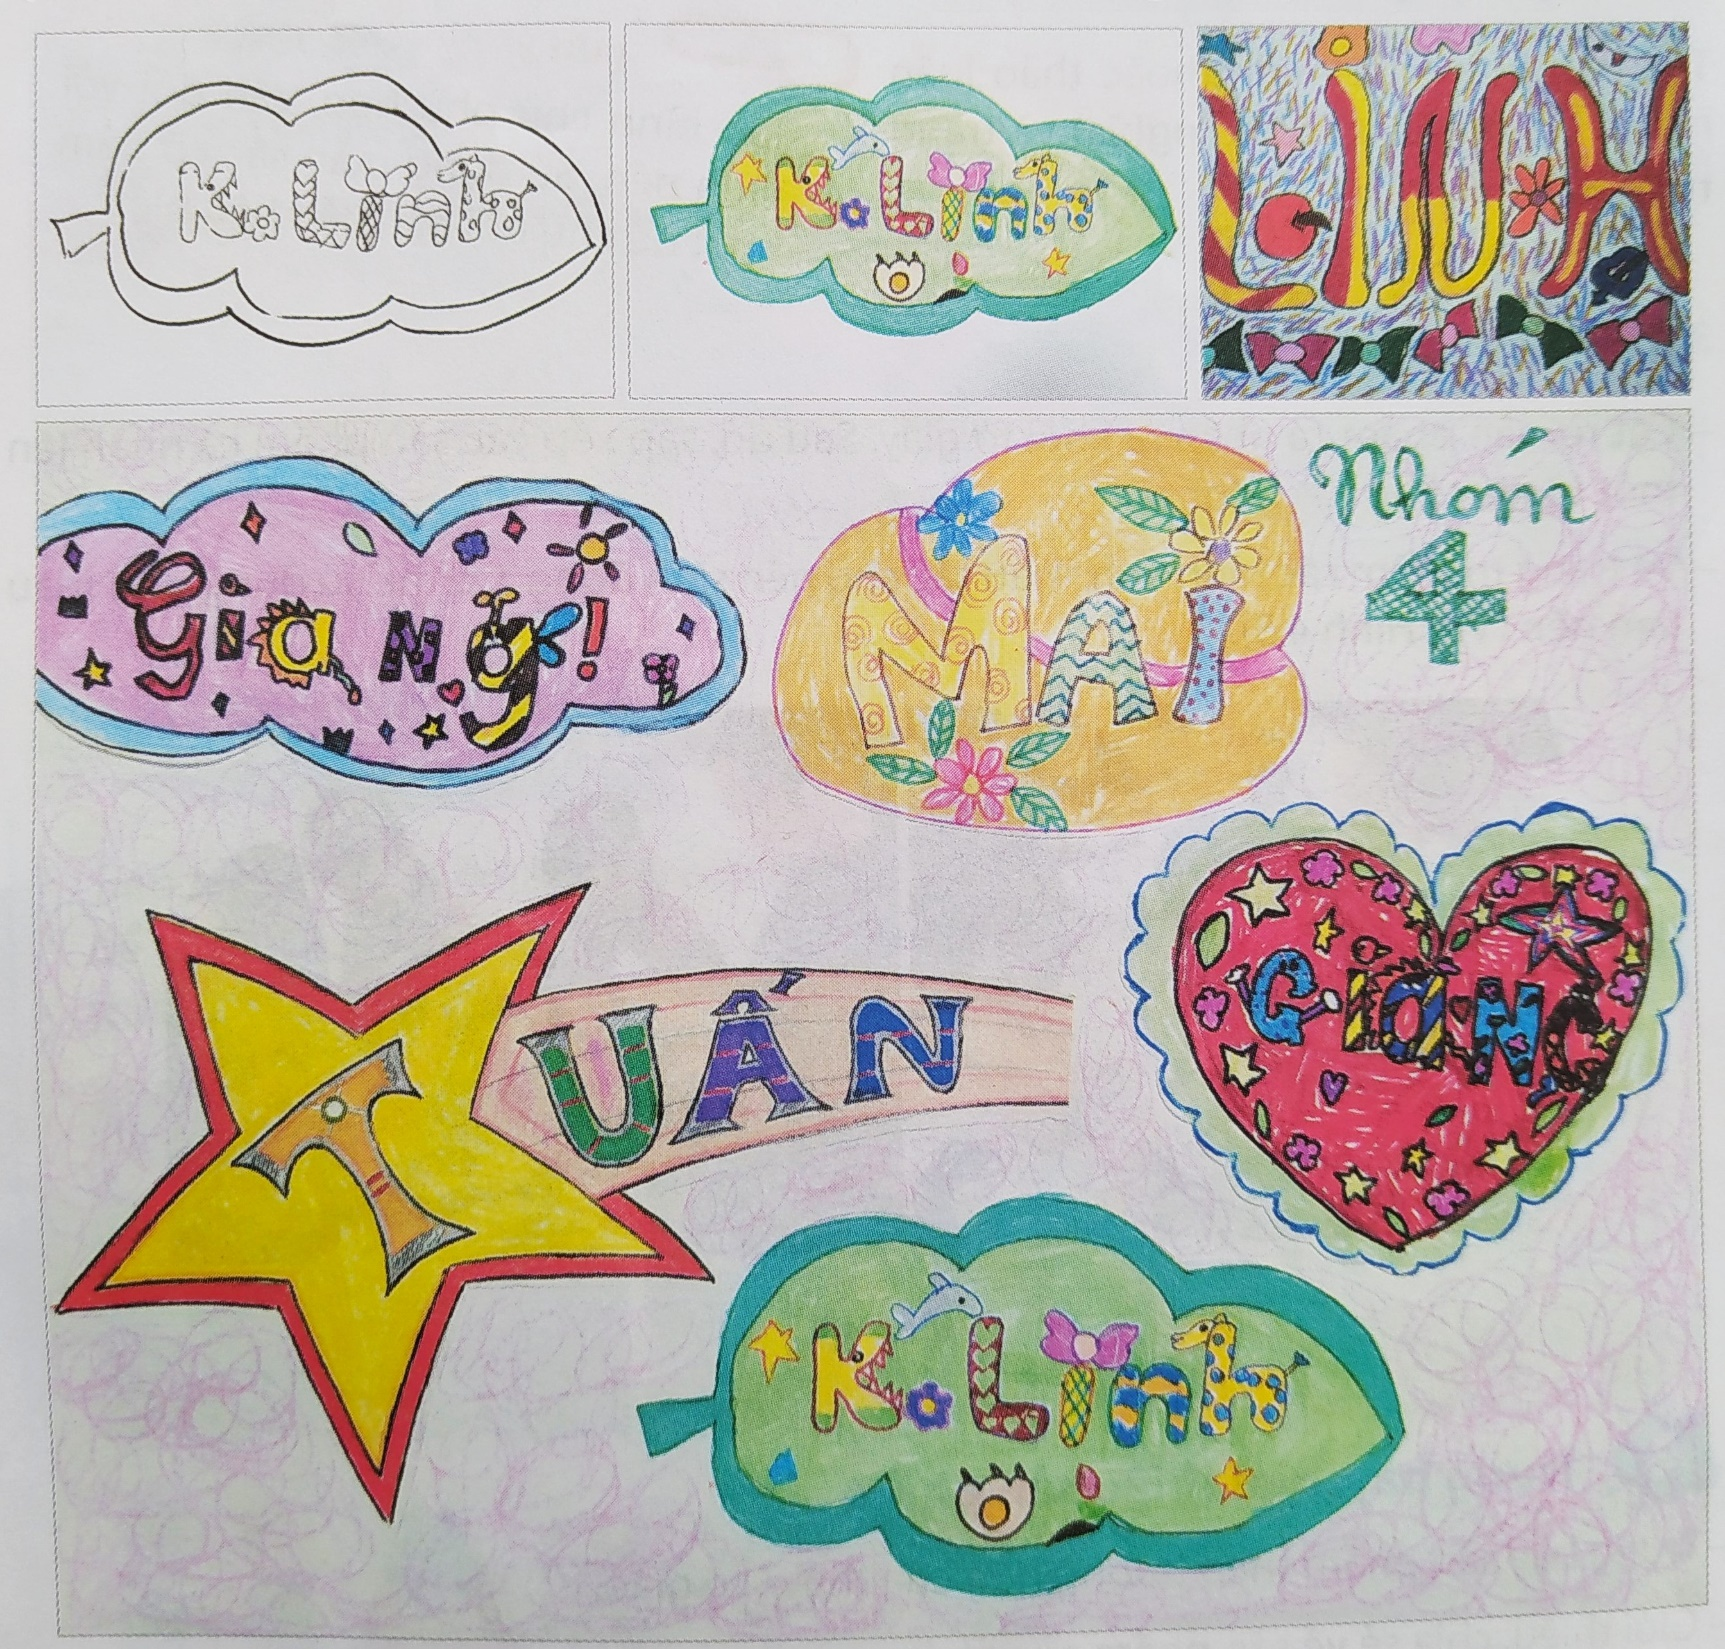 K.Linh
K.Linh
LINH
Giang!
MAI
Nhóm
4
TUẤN
GIANG
K.Linh